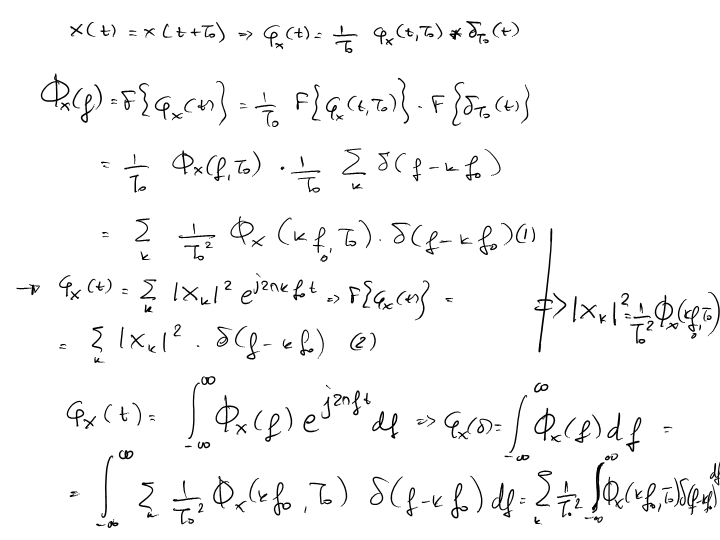 x(t) = x(t+T₀) ⇒ φₓ(t) = 1/T₀ φₓ(t,T₀) * δ_T₀(t)
Φₓ(f) = F{φₓ(t)} = 1/T₀ F{φₓ(t,T₀)} · F{δ_T₀(t)}
= 1/T₀ Φₓ(f,T₀) · 1/T₀ Σ_k δ(f-kf₀)
= Σ_k 1/T₀² Φₓ(kf₀,T₀) · δ(f-kf₀) (1)
→ φₓ(t) = Σ_k |X_k|² e^{j2πkf₀t} ⇒ F{φₓ(t)} =
= Σ_k |X_k|² · δ(f-kf₀) (2)
⇒ |X_k|² = 1/T₀² Φₓ(kf₀,T₀)
φₓ(t) = ∫_{-∞}^{∞} Φₓ(f) e^{j2πft} df ⇒ φₓ(0) = ∫_{-∞}^{∞} Φₓ(f) df =
= ∫_{-∞}^{∞} Σ_k 1/T₀² Φₓ(kf₀,T₀) δ(f-kf₀) df = Σ_k 1/T₀² ∫_{-∞}^{∞} Φₓ(kf₀,T₀) δ(f-kf₀) df